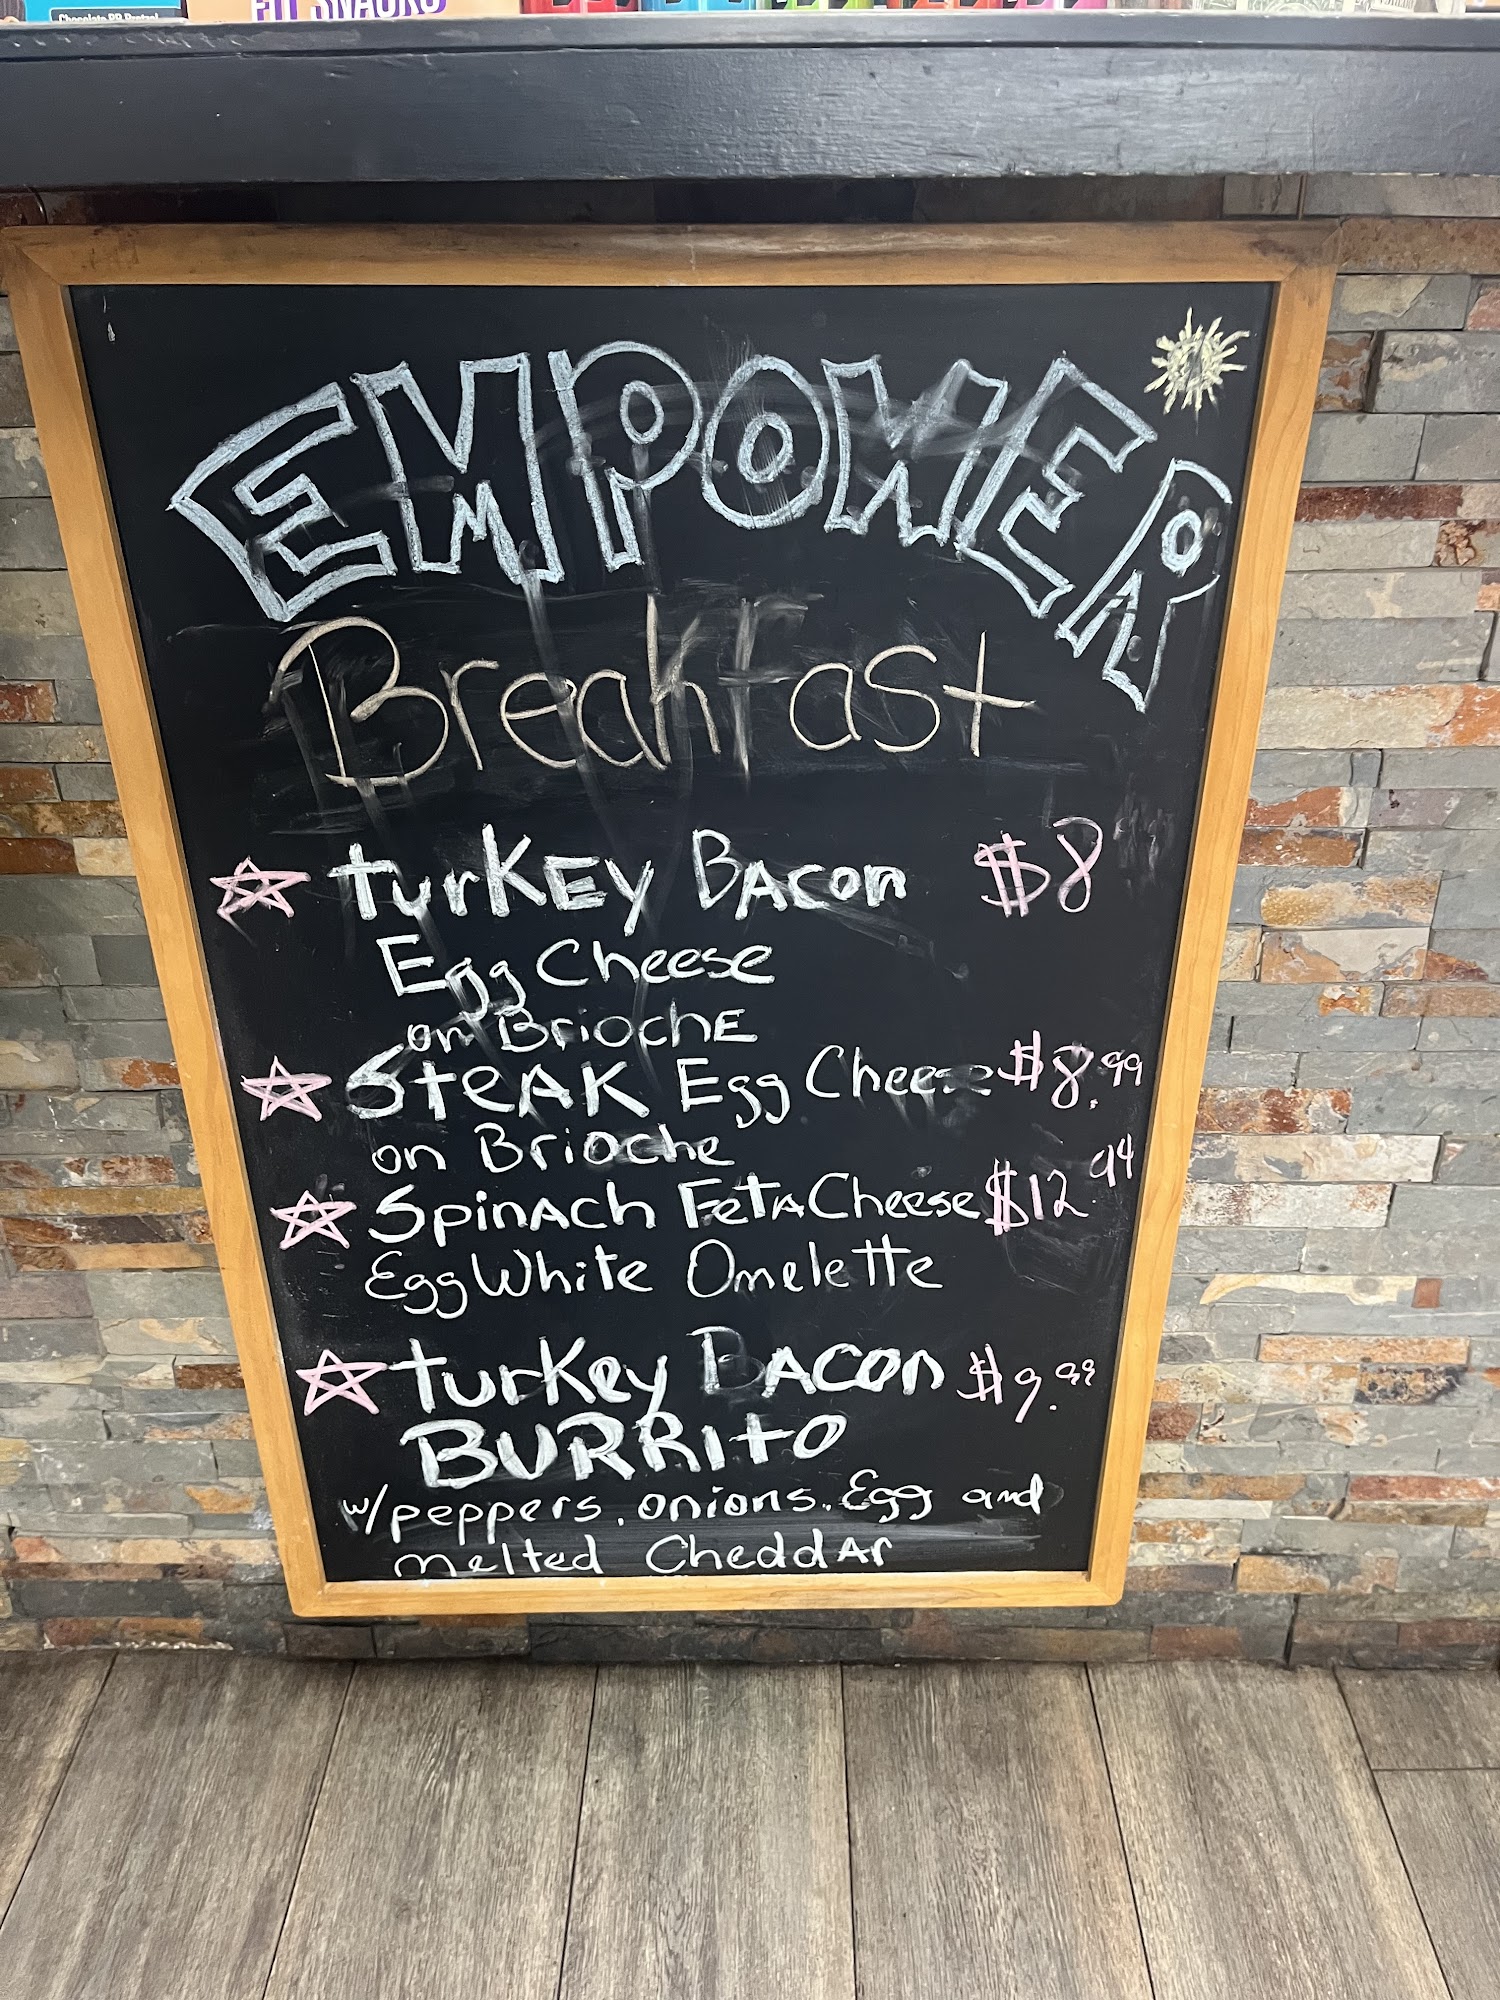 Chocolate PB Pretzel
FIT SNACKS
EMPOWER
Breakfast
TurKEy BAcon $8
Egg Cheese
on BriochE
SteAK Egg Cheese $8.99
on Brioche
SpinAch FetA Cheese $12.99
Egg White Omelette
Turkey BAcon $9.99
BURRITO
w/peppers, onions, Egg and
melted CheddAr